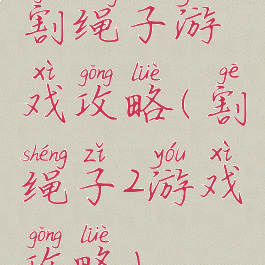 割绳子游
xì gōng lüè gē
戏攻略(割
shéng zǐ yóu xì
绳子2游戏
gōng lüè
攻略)